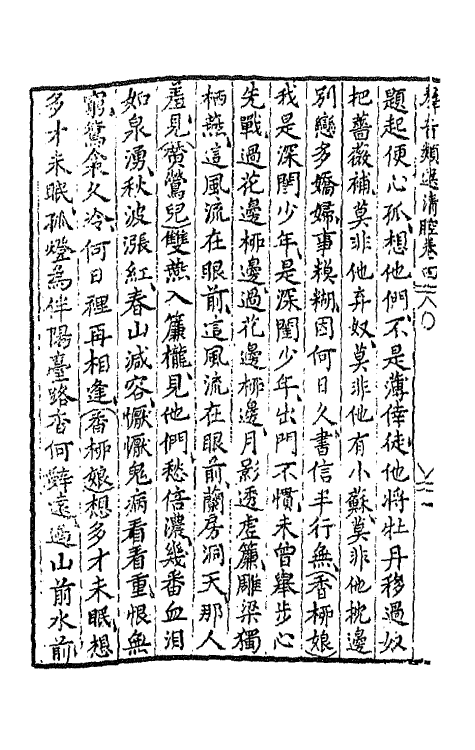 群音類選清腔卷四
題起便心孤想他們不是薄倖徒他將牡丹移過奴
把薔薇補莫非他弃奴莫非他有小蘇莫非他枕邊
別戀多嬌婦事模糊因何日久書信半行無香柳娘
我是深閨少年是深閨少年出門不慣未曾舉步心
先戰過花邊柳邊過花邊柳邊月影透虛簾雕梁獨
栖燕這風流在眼前這風流在眼前蘭房洞天那人
羞見黃鶯兒雙燕入簾櫳見他們愁倍濃幾番血淚
如泉湧秋波漲紅春山減容懨懨鬼病看看重恨無
窮鴛衾久冷何日裡再相逢香柳娘想多才未眠想
多才未眠孤燈為伴陽臺路杳何辭遠過山前水前